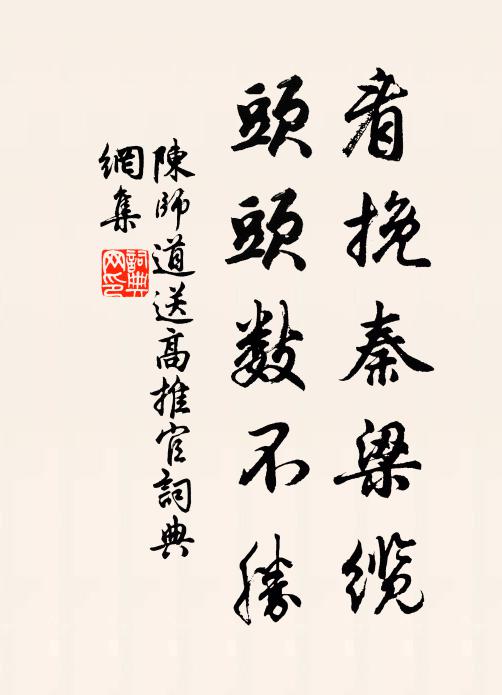 看挽秦梁缆
頭頭数不勝
陳師道送高推官詞典
網集
詞典網印